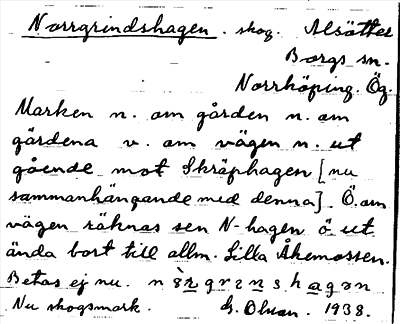 Norrgrindshagen. skog. Alsätter
Borgs sn.
Norrköping. Ög.
Marken n. om gården n. om
gärdena v. om vägen n. ut
gående mot Skräphagen [nu
sammanhängande med denna]. Ö. om
vägen räknas sen N-hagen ö ut
ända bort till allm. Lilla Åkemossen.
Betas ej nu.
Nu skogsmark. G. Olsson. 1938.